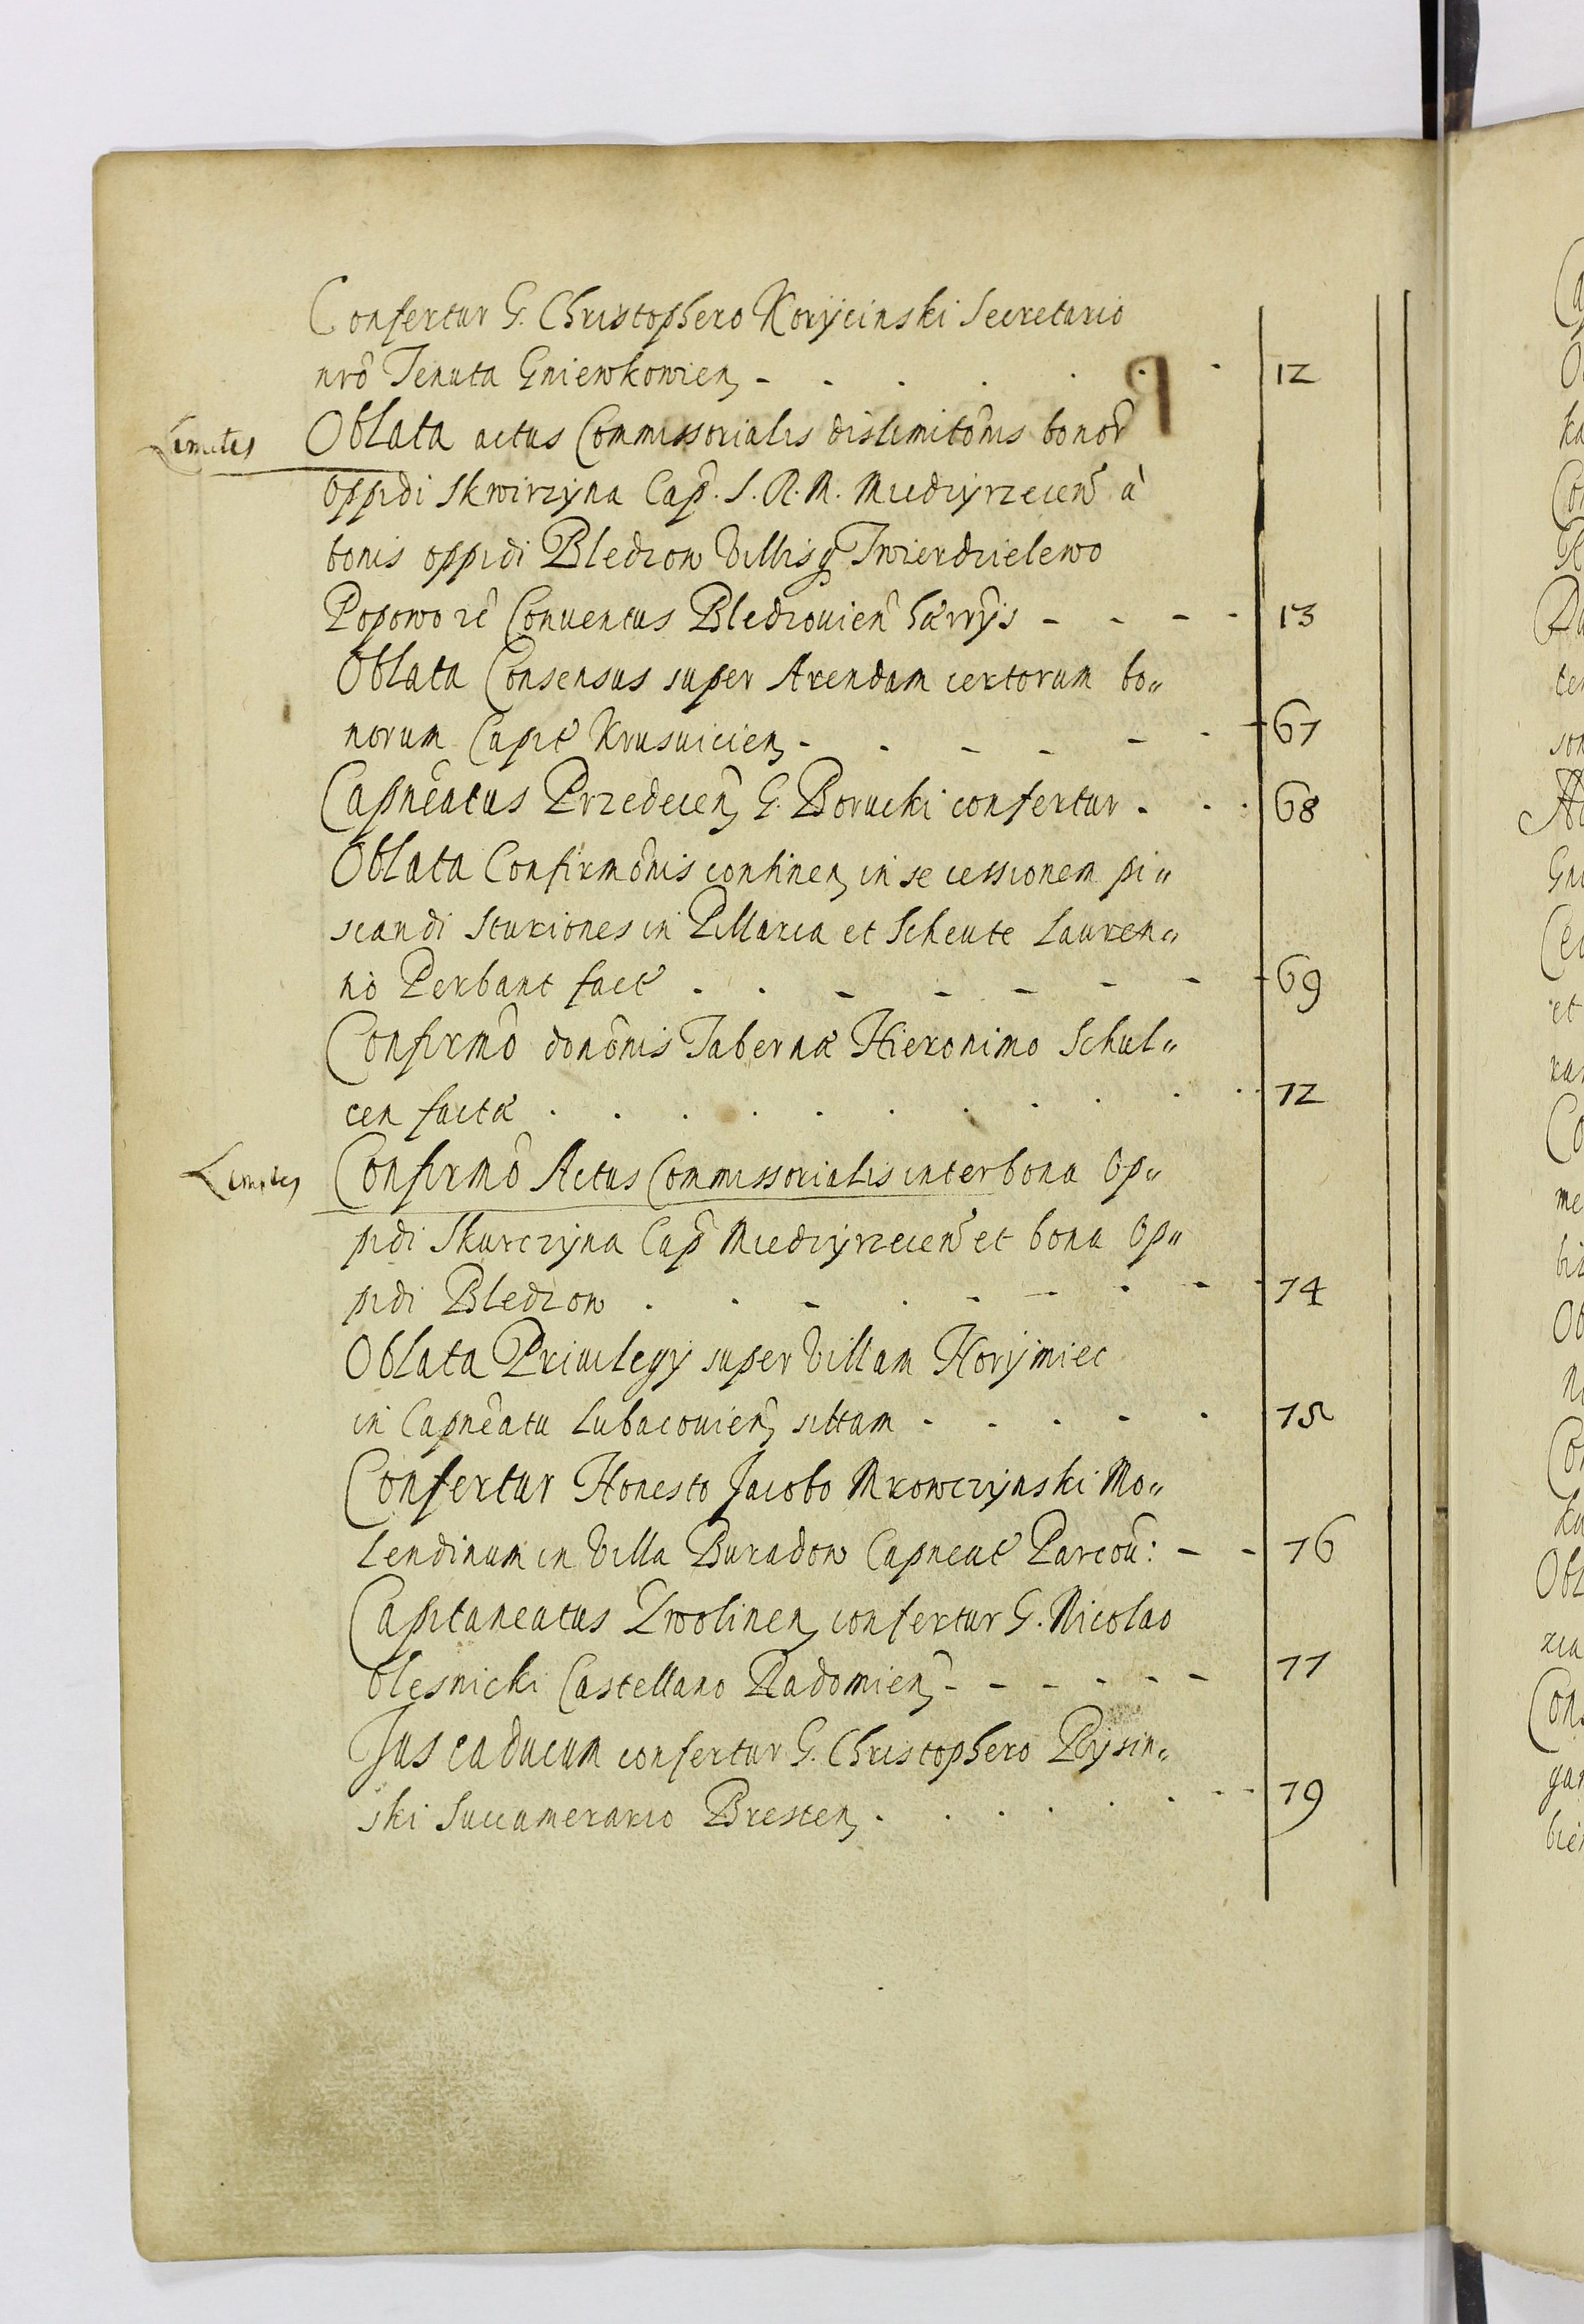 Confertur G. Christophero Koryicinski Secretario
nrô Tenuta Gniewkowien, - - - - - - 12
Limites Oblata actus Commissorialis dislimitônis bonor̂
Oppidi Skwirzyna Cap̂. S. R. M. Miedzyrzecen̂ à
bonis oppidi Bledzow Villisq Twierdzielewo
Popowo zê Conventus Bledzouien̂ - - - - 13
Oblata Consensus super Arendam certorum bo„
norum Capit̂ Krusuicien, - - - - - - 67
Capnêatus Przedecen̂, G. Borucki confertur - - - 68
Oblata Confirmônis continen, in se cessionem pi„
scandi Sturiones in Pillavia et Scheute Lauren„
tio Perbant fact̂ - - - - - - - - 69
Confirmô donônis Tabernæ Hieronimo Schul„
cen factæ . . . . . . . . . . 72
Limites Confirmô Actus Commissorialis inter bona Op„
pidi Skurczyna Cap̂ Miedzyrzecen̂ et bona Op„
pidi Bledzow . - - . - - - - - 74
Oblata Priuilegÿ super Villam Horÿmiec
in Capnêatu Lubacouien̂, sittam - - - - - 75
Confertur Honesto Jacobo Mrowczynski Mo„
lendinum in Villa Buradow Capneat̂ Parcoû: - - 76
Capitaneatus Zwolinen, confertur G. Nicolao
Olesnicki Castellano Radomien̂, - - - - - - 77
Jus caducum confertur G. Christophero Pÿsin„
ski Succamerario Bresten, - - - - - - - 79